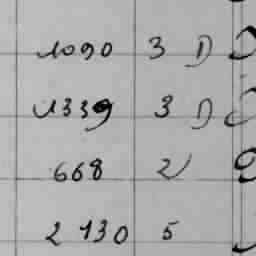 1090 3 D
1339 3 D
668 2
2 130 5